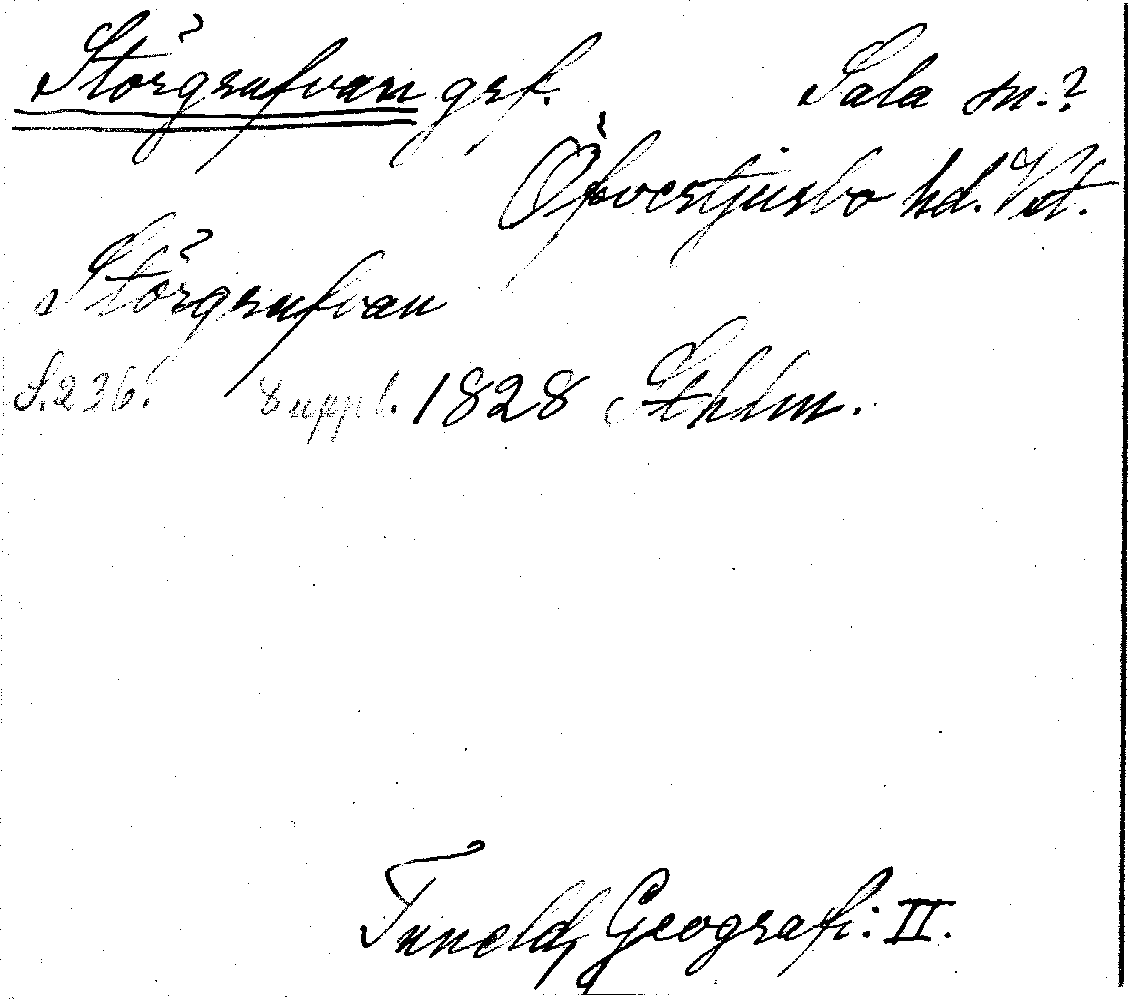 Störgrufvan grf. Sala sn.?
Öfvertjurbo hd. Vstm.
Störgrufvan
S. 236. 8 uppl. 1828 Sthlm.
Tunelds Geografi: II.